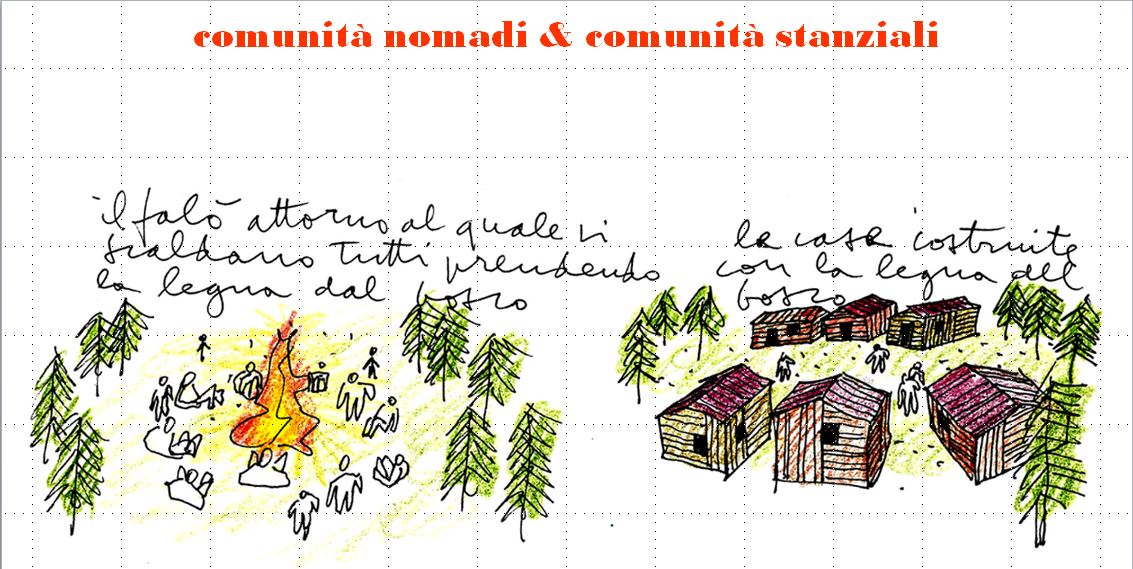 comunità nomadi & comunità stanziali
il falò attorno al quale si
scaldano tutti prendendo
la legna dal bosco
le case costruite
con la legna del
bosco